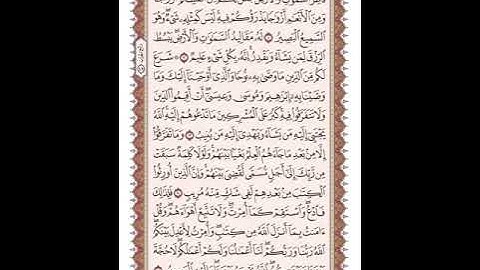 وَمِنَ ٱلۡأَنۡعَٰمِ أَزۡوَٰجٗا يَذۡرَؤُكُمۡ فِيهِۚ لَيۡسَ كَمِثۡلِهِۦ شَيۡءٞۖ وَهُوَ
ٱلسَّمِيعُ ٱلۡبَصِيرُ ١١ لَهُۥ مَقَالِيدُ ٱلسَّمَٰوَٰتِ وَٱلۡأَرۡضِۖ يَبۡسُطُ
ٱلرِّزۡقَ لِمَن يَشَآءُ وَيَقۡدِرُۚ إِنَّهُۥ بِكُلِّ شَيۡءٍ عَلِيمٞ ١٢ ۞ شَرَعَ
لَكُم مِّنَ ٱلدِّينِ مَا وَصَّىٰ بِهِۦ نُوحٗا وَٱلَّذِيٓ أَوۡحَيۡنَآ إِلَيۡكَ وَمَا
وَصَّيۡنَا بِهِۦٓ إِبۡرَٰهِيمَ وَمُوسَىٰ وَعِيسَىٰٓۖ أَنۡ أَقِيمُواْ ٱلدِّينَ
وَلَا تَتَفَرَّقُواْ فِيهِۚ كَبُرَ عَلَى ٱلۡمُشۡرِكِينَ مَا تَدۡعُوهُمۡ إِلَيۡهِۚ ٱللَّهُ
يَجۡتَبِيٓ إِلَيۡهِ مَن يَشَآءُ وَيَهۡدِيٓ إِلَيۡهِ مَن يُنِيبُ ١٣ وَمَا تَفَرَّقُوٓاْ
إِلَّا مِنۢ بَعۡدِ مَا جَآءَهُمُ ٱلۡعِلۡمُ بَغۡيَۢا بَيۡنَهُمۡۚ وَلَوۡلَا كَلِمَةٞ سَبَقَتۡ
مِن رَّبِّكَ إِلَىٰٓ أَجَلٖ مُّسَمّٗى لَّقُضِيَ بَيۡنَهُمۡۚ وَإِنَّ ٱلَّذِينَ أُورِثُواْ
ٱلۡكِتَٰبَ مِنۢ بَعۡدِهِمۡ لَفِي شَكّٖ مِّنۡهُ مُرِيبٖ ١٤ فَلِذَٰلِكَ
فَٱدۡعُۖ وَٱسۡتَقِمۡ كَمَآ أُمِرۡتَۖ وَلَا تَتَّبِعۡ أَهۡوَآءَهُمۡۖ وَقُلۡ
ءَامَنتُ بِمَآ أَنزَلَ ٱللَّهُ مِن كِتَٰبٖۖ وَأُمِرۡتُ لِأَعۡدِلَ بَيۡنَكُمُۖ
ٱللَّهُ رَبُّنَا وَرَبُّكُمۡۖ لَنَآ أَعۡمَٰلُنَا وَلَكُمۡ أَعۡمَٰلُكُمۡۖ لَا حُجَّةَ